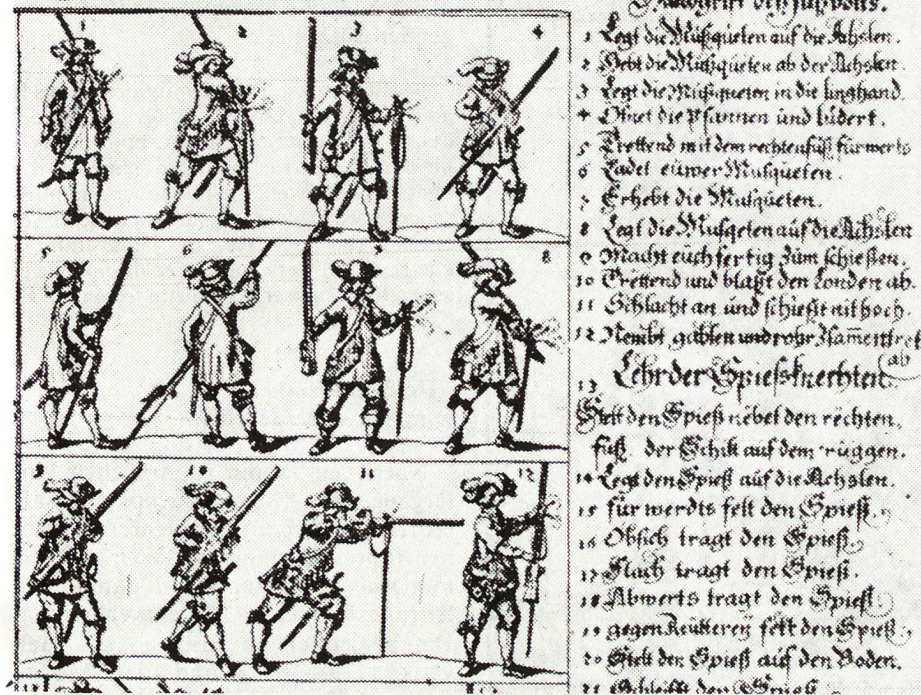 1 2 3 4
5 6 7 8
9 10 11 12
1 Legt die Mußqueten auf die Achslen.
2 Hebt die Mußqueten ab der Achslen.
3 Legt die Mußqueten in die linghand.
4 Ofnet die Pfannen und büdert.
5 Trettend mit dem rechten füß fürwerts
6 Ladet eüwer Musqueten.
7 Erhebt die Musqüeten.
8 Legt die Musqeten auf die Achslen
9 Macht euch fertig zum schießen.
10 Trettend und blaßt den Londen ab.
11 Schlacht an und schießt nit hoch.
12 Nembt gablen und rohr
ab
13 Lehr der Spiessknechten.
Stelt den Spieß nebet den rechten.
füß. der Schilt auf dem rüggen.
14 Legt den Spieß auf die Achslen.
15 für werdts felt den Spieß.
16 Obsich tragt den Spieß.
17 Flach tragt den Spieß.
18 Abwerts tragt den Spieß.
19 gegen Reütterey felt den Spieß.
20 Stelt den Spieß auf den Boden.
21 den Spieß